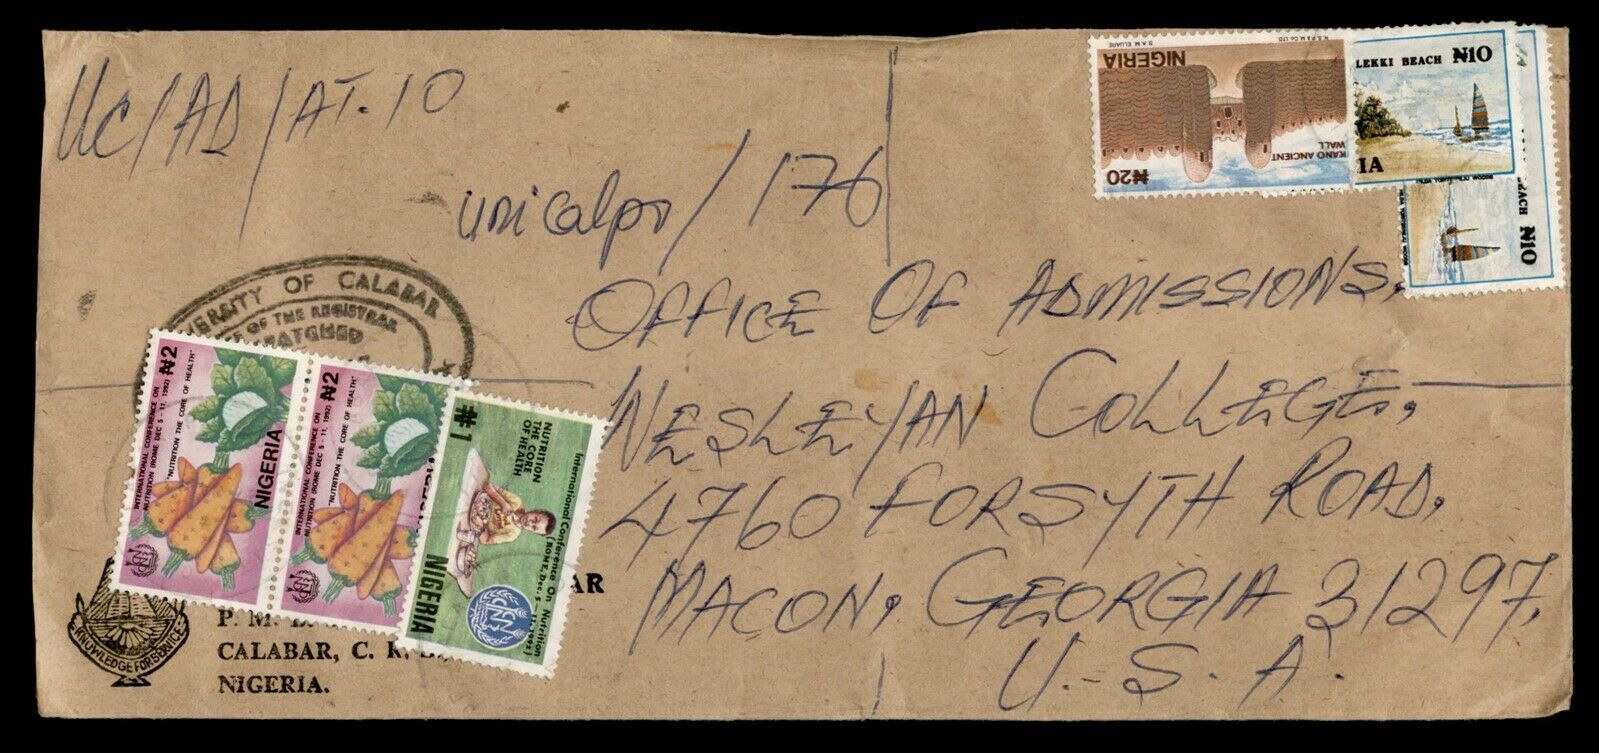 UC/AD/AT.10
unicalpo/176
OFFICE OF ADMISSIONS,
WESLEYAN COLLEGE,
4760 FORSYTH ROAD,
MACON, GEORGIA 31297,
U.S.A.
NIGERIA
S.A.M. ELUARE
N.S.P.&M.Co LTD.
KANO ANCIENT
WALL
₦20
LEKKI BEACH ₦10
IA
EACH ₦10
VERSITY OF CALABAR
OF THE REGISTRAR
PATCHED
₦2
INTERNATIONAL CONFERENCE ON
NUTRITION (ROME DEC 5 - 11, 1992)
"NUTRITION THE CORE OF HEALTH"
NIGERIA
₦2
INTERNATIONAL CONFERENCE ON
NUTRITION (ROME DEC 5 - 11, 1992)
"NUTRITION THE CORE OF HEALTH"
₦1
NUTRITION
THE CORE
OF HEALTH
International Conference On Nutrition
(ROME, Dec. 5 - 11, 1992)
NIGERIA
AR
P. M.
CALABAR, C. R.
NIGERIA.
KNOWLEDGE FOR SERVICE